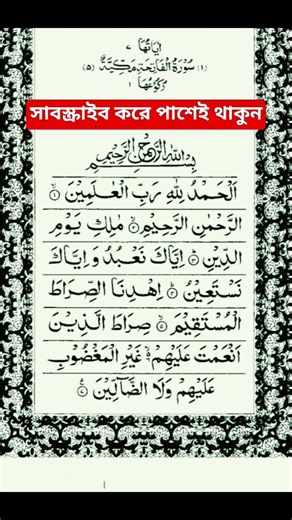 اٰیَاتُهَا ٧
(١) سُوْرَةُ الْفَاتِحَةِ مَكِّیَّةٌ (٥)
رُكُوْعُهَا ١
সাবস্ক্রাইব করে পাশেই থাকুন
بِسْمِ اللّٰهِ الرَّحْمٰنِ الرَّحِیْمِ
اَلْحَمْدُ لِلّٰهِ رَبِّ الْعٰلَمِیْنَ ۝١
الرَّحْمٰنِ الرَّحِیْمِ ۝٢ مٰلِكِ یَوْمِ
الدِّیْنِ ۝٣ اِیَّاكَ نَعْبُدُ وَ اِیَّاكَ
نَسْتَعِیْنُ ۝٤ اِهْدِنَا الصِّرَاطَ
الْمُسْتَقِیْمَ ۝٥ صِرَاطَ الَّذِیْنَ
اَنْعَمْتَ عَلَیْهِمْ ۝٦ غَیْرِ الْمَغْضُوْبِ
عَلَیْهِمْ وَلَا الضَّآلِّیْنَ ۝٧